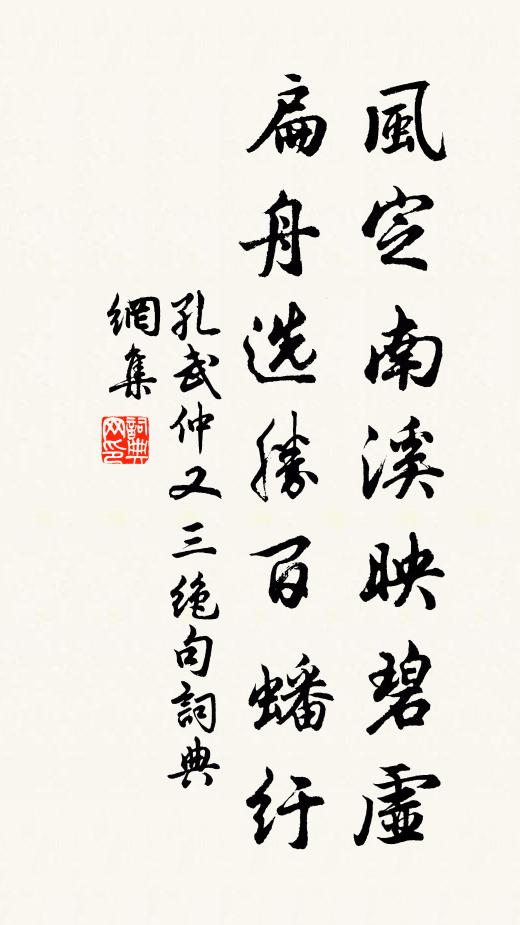 風定南溪映碧虛
扁舟选勝百蟠纡
孔武仲又三绝句詞典
網集
詞典
网印